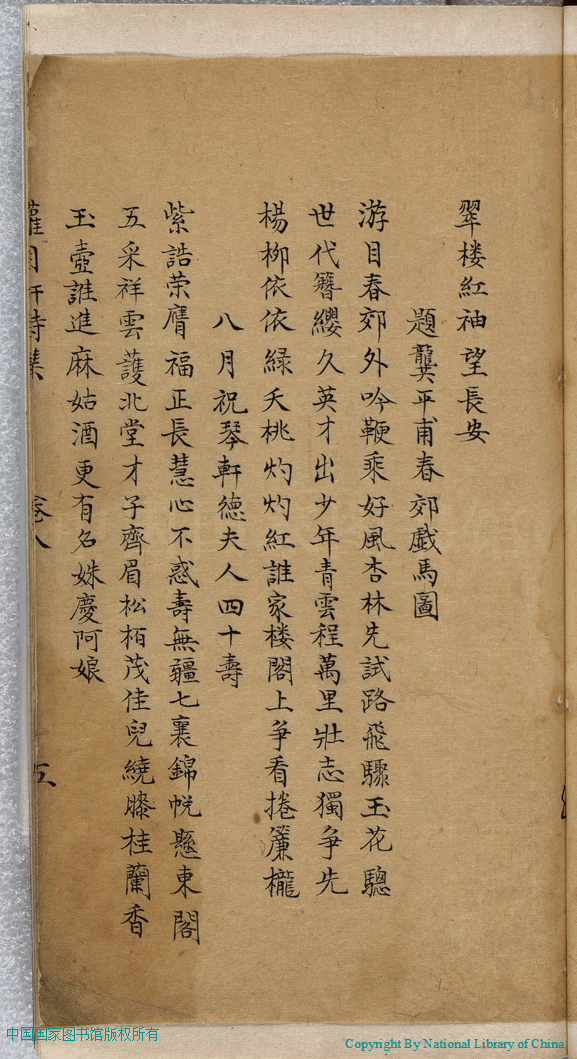 翠楼紅袖望長安
題龔平甫春郊戯馬圖
游目春郊外吟鞭乘好風杏林先試路飛驟玉花驄
世代簪纓久英才出少年青雲程萬里壯志獨爭先
楊柳依依緑夭桃灼灼紅誰家楼閣上爭看捲簾櫳
八月祝琴軒德夫人四十壽
紫誥荣膺福正長慧心不惑壽無疆七襄錦帨懸東閣
五采祥雲護北堂才子齊眉松栢茂佳兒繞膝桂蘭香
玉壺誰進麻姑酒更有名姝慶阿娘
軒詩集
卷八
五
中国国家图书馆版权所有
Copyright By National Library of China